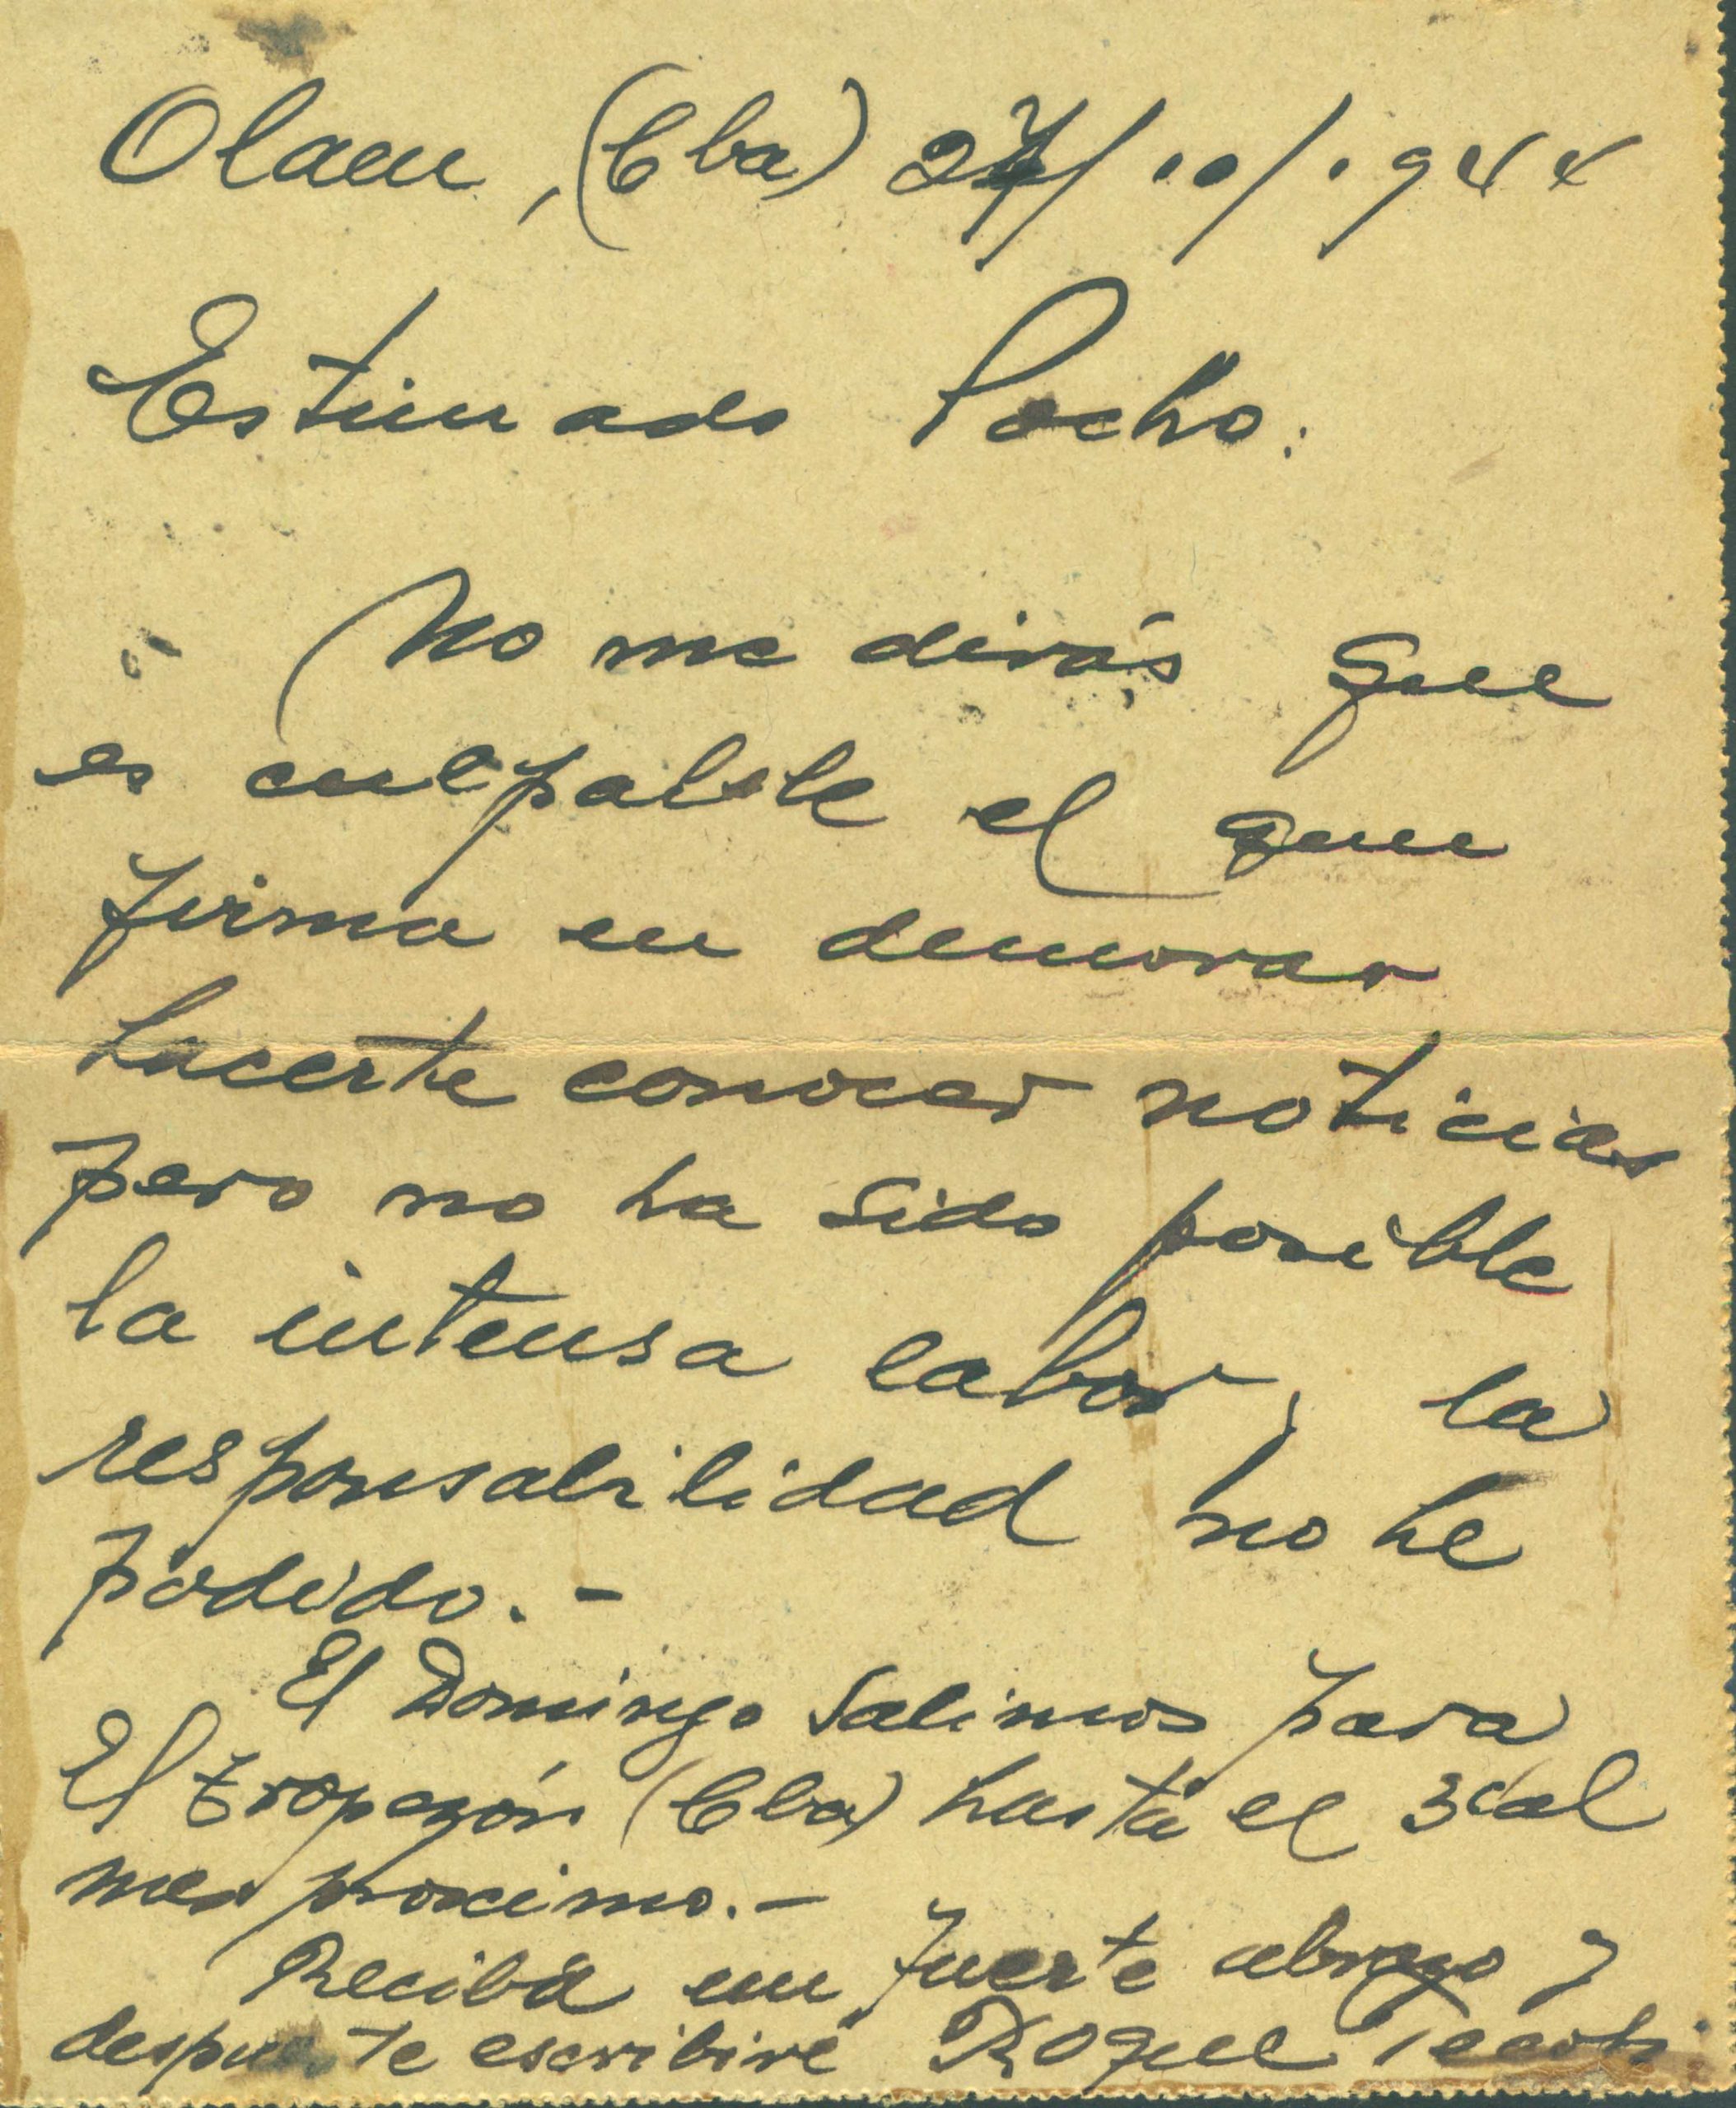 Olaen, (Cba) 27/10/1944
Estimado Pocho:
No me dirás que
es culpable el que
firma en demorar
hacerte conocer noticias
pero no ha sido posible
la intensa labor, la
responsabilidad no he
podido.-
El Domingo salimos para
El tropezón (Cba) hasta el 3 del
mes proximo.-
Recibá un fuerte abrazo y
despues te escribiré Roque